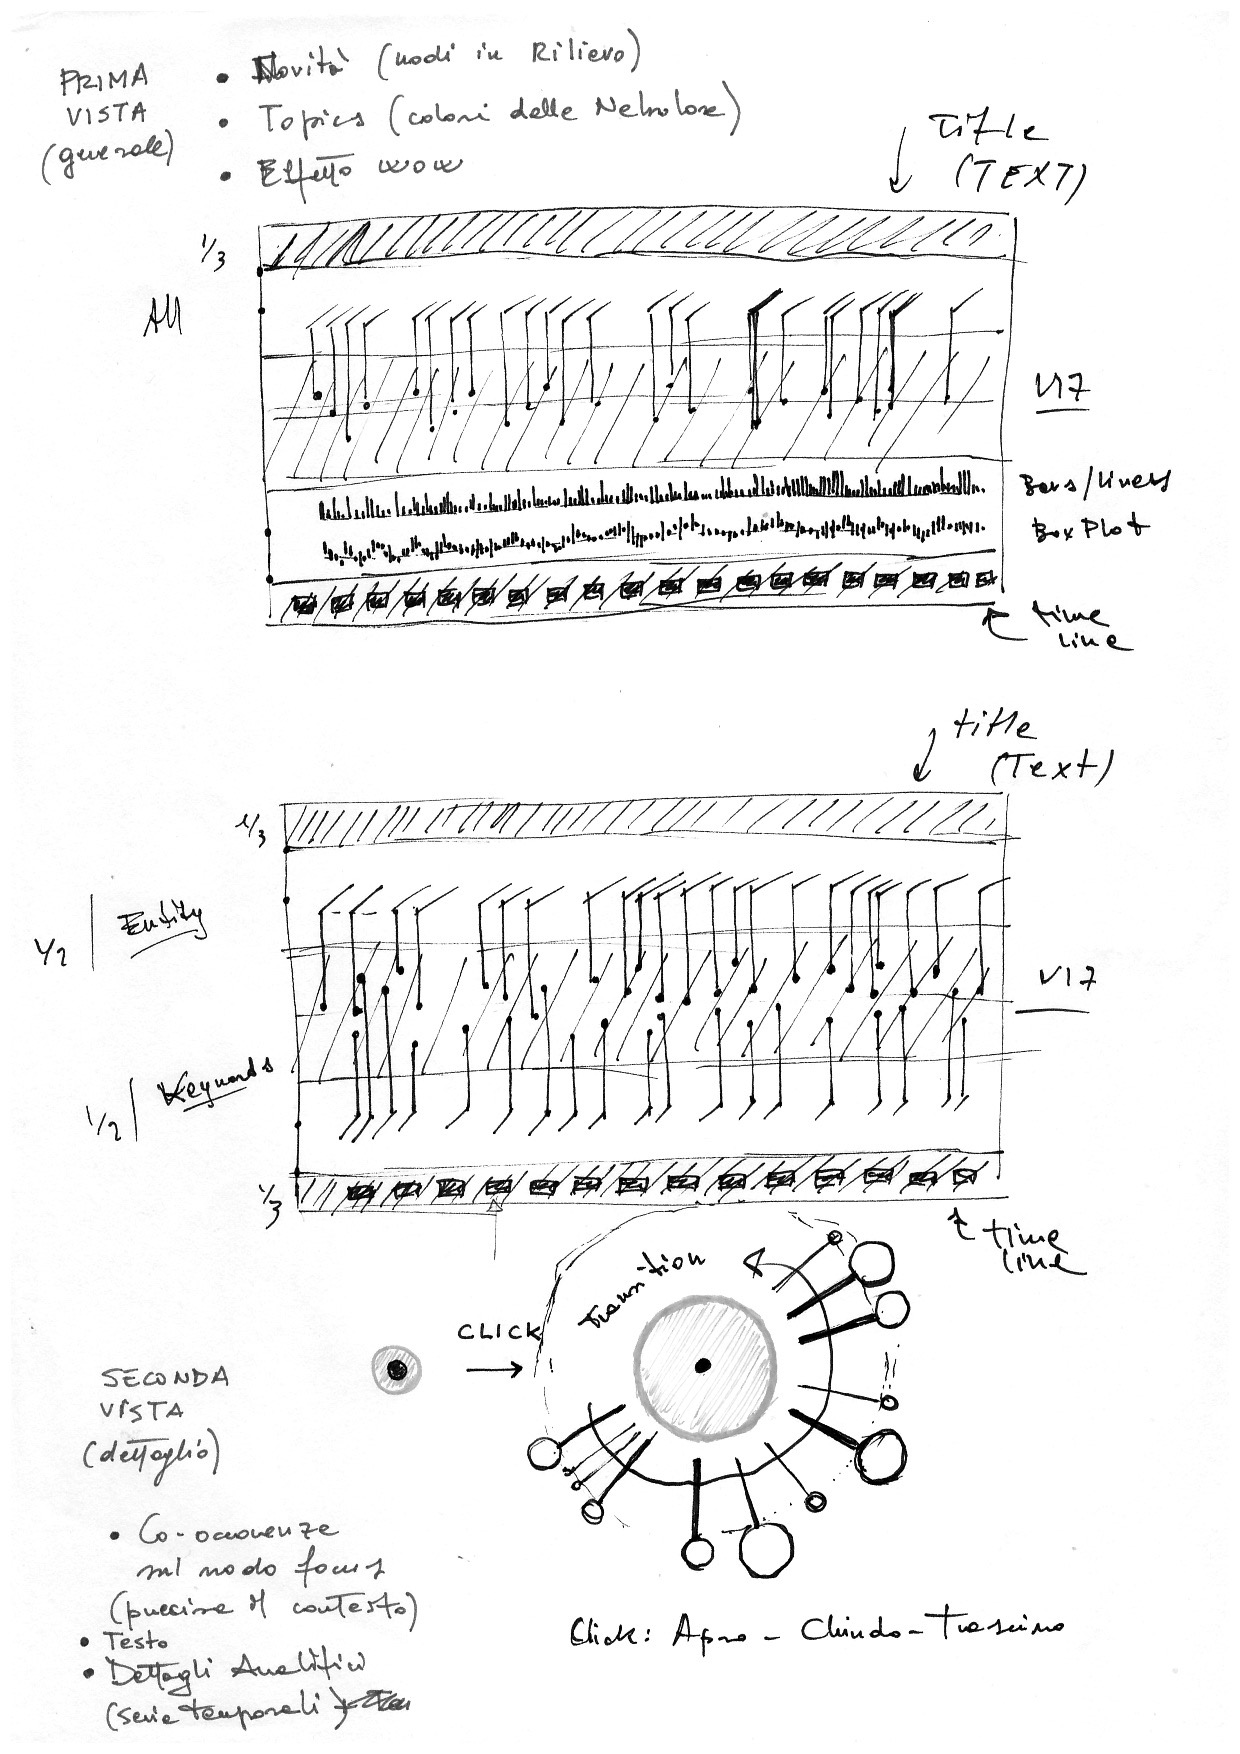 PRIMA
VISTA
(generale)
• Novità (nodi in Rilievo)
• Topics (colori delle Nebulose)
• Effetto wow
Title
(TEXT)
1/3
All
V17
Bars/liners
Box Plot
time
line
title
(Text)
1/3
1/2
Entity
V17
1/2
Keywords
1/3
time
line
Transition
CLICK
SECONDA
VISTA
(dettaglio)
• Co-occorrenze
sul nodo focus
(precisa il contesto)
• Testo
• Dettagli Analitici
(serie temporali)
Click: Apro - Chiudo - Trascino